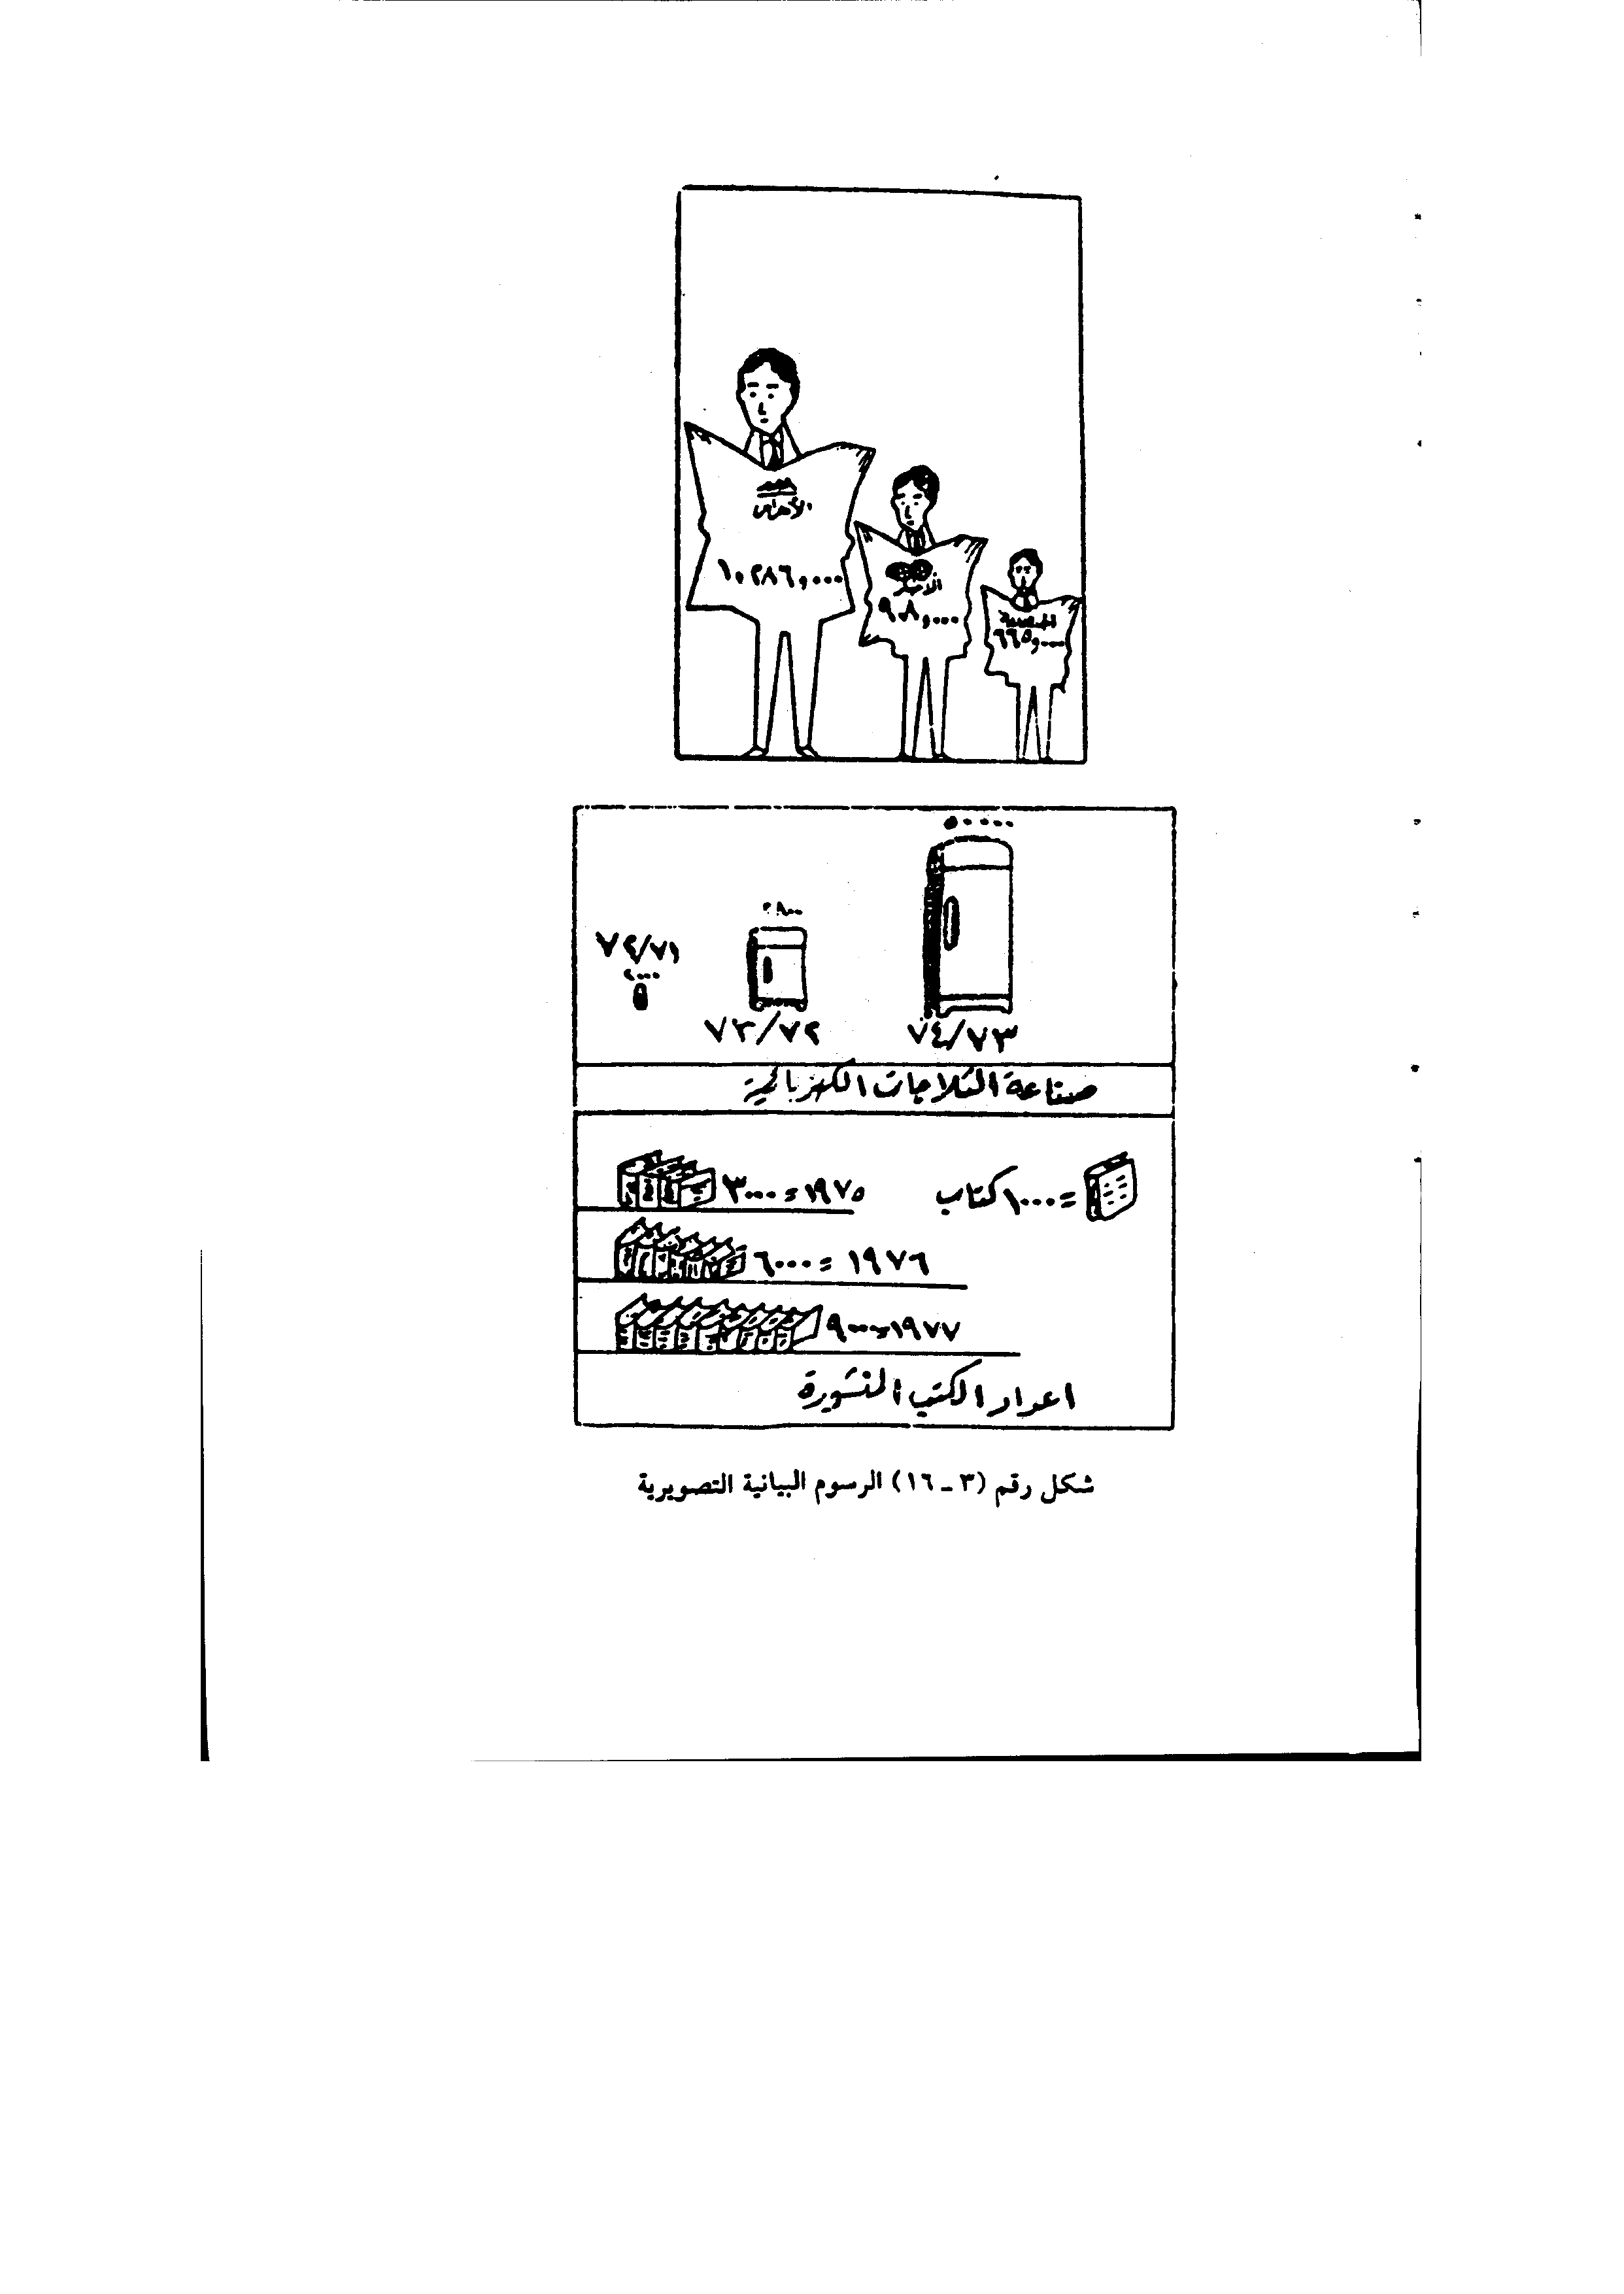 الأهرام
١٠,٢٨٦,٠٠٠
الأخبار
٩٠٨,٠٠٠
٦٦٥,٠٠٠
٥٠٠٠٠
٧٢/٧١
٧٣/٧٢
٧٤/٧٣
صناعة الثلاجات الكهربائية
= ١٠٠٠ كتاب
١٩٧٥ = ٣٠٠٠
١٩٧٦ = ٦٠٠٠
١٩٧٧ = ٩٠٠٠
اعداد الكتب المنشورة
شكل رقم (٣ - ١٦) الرسوم البيانية التصويرية